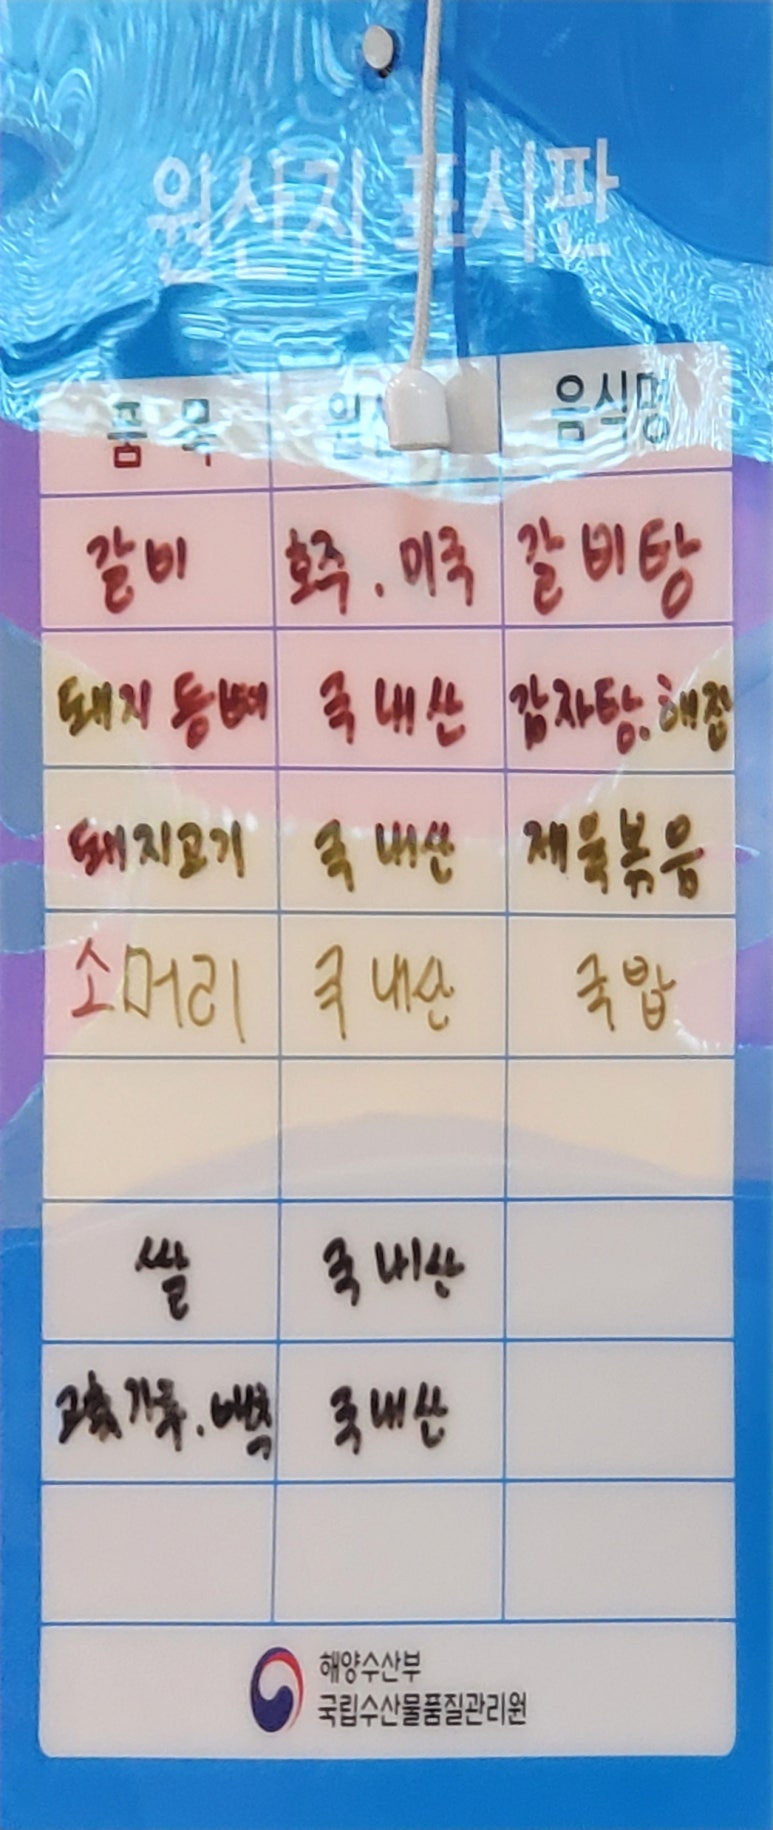 원산지 표시판
품 목 원산 음식명
갈비 호주.미국 갈비탕
돼지 등뼈 국내산 감자탕.해장
돼지고기 국내산 제육볶음
소머리 국내산 국밥
쌀 국내산
고춧가루.배추 국내산
해양수산부
국립수산물품질관리원